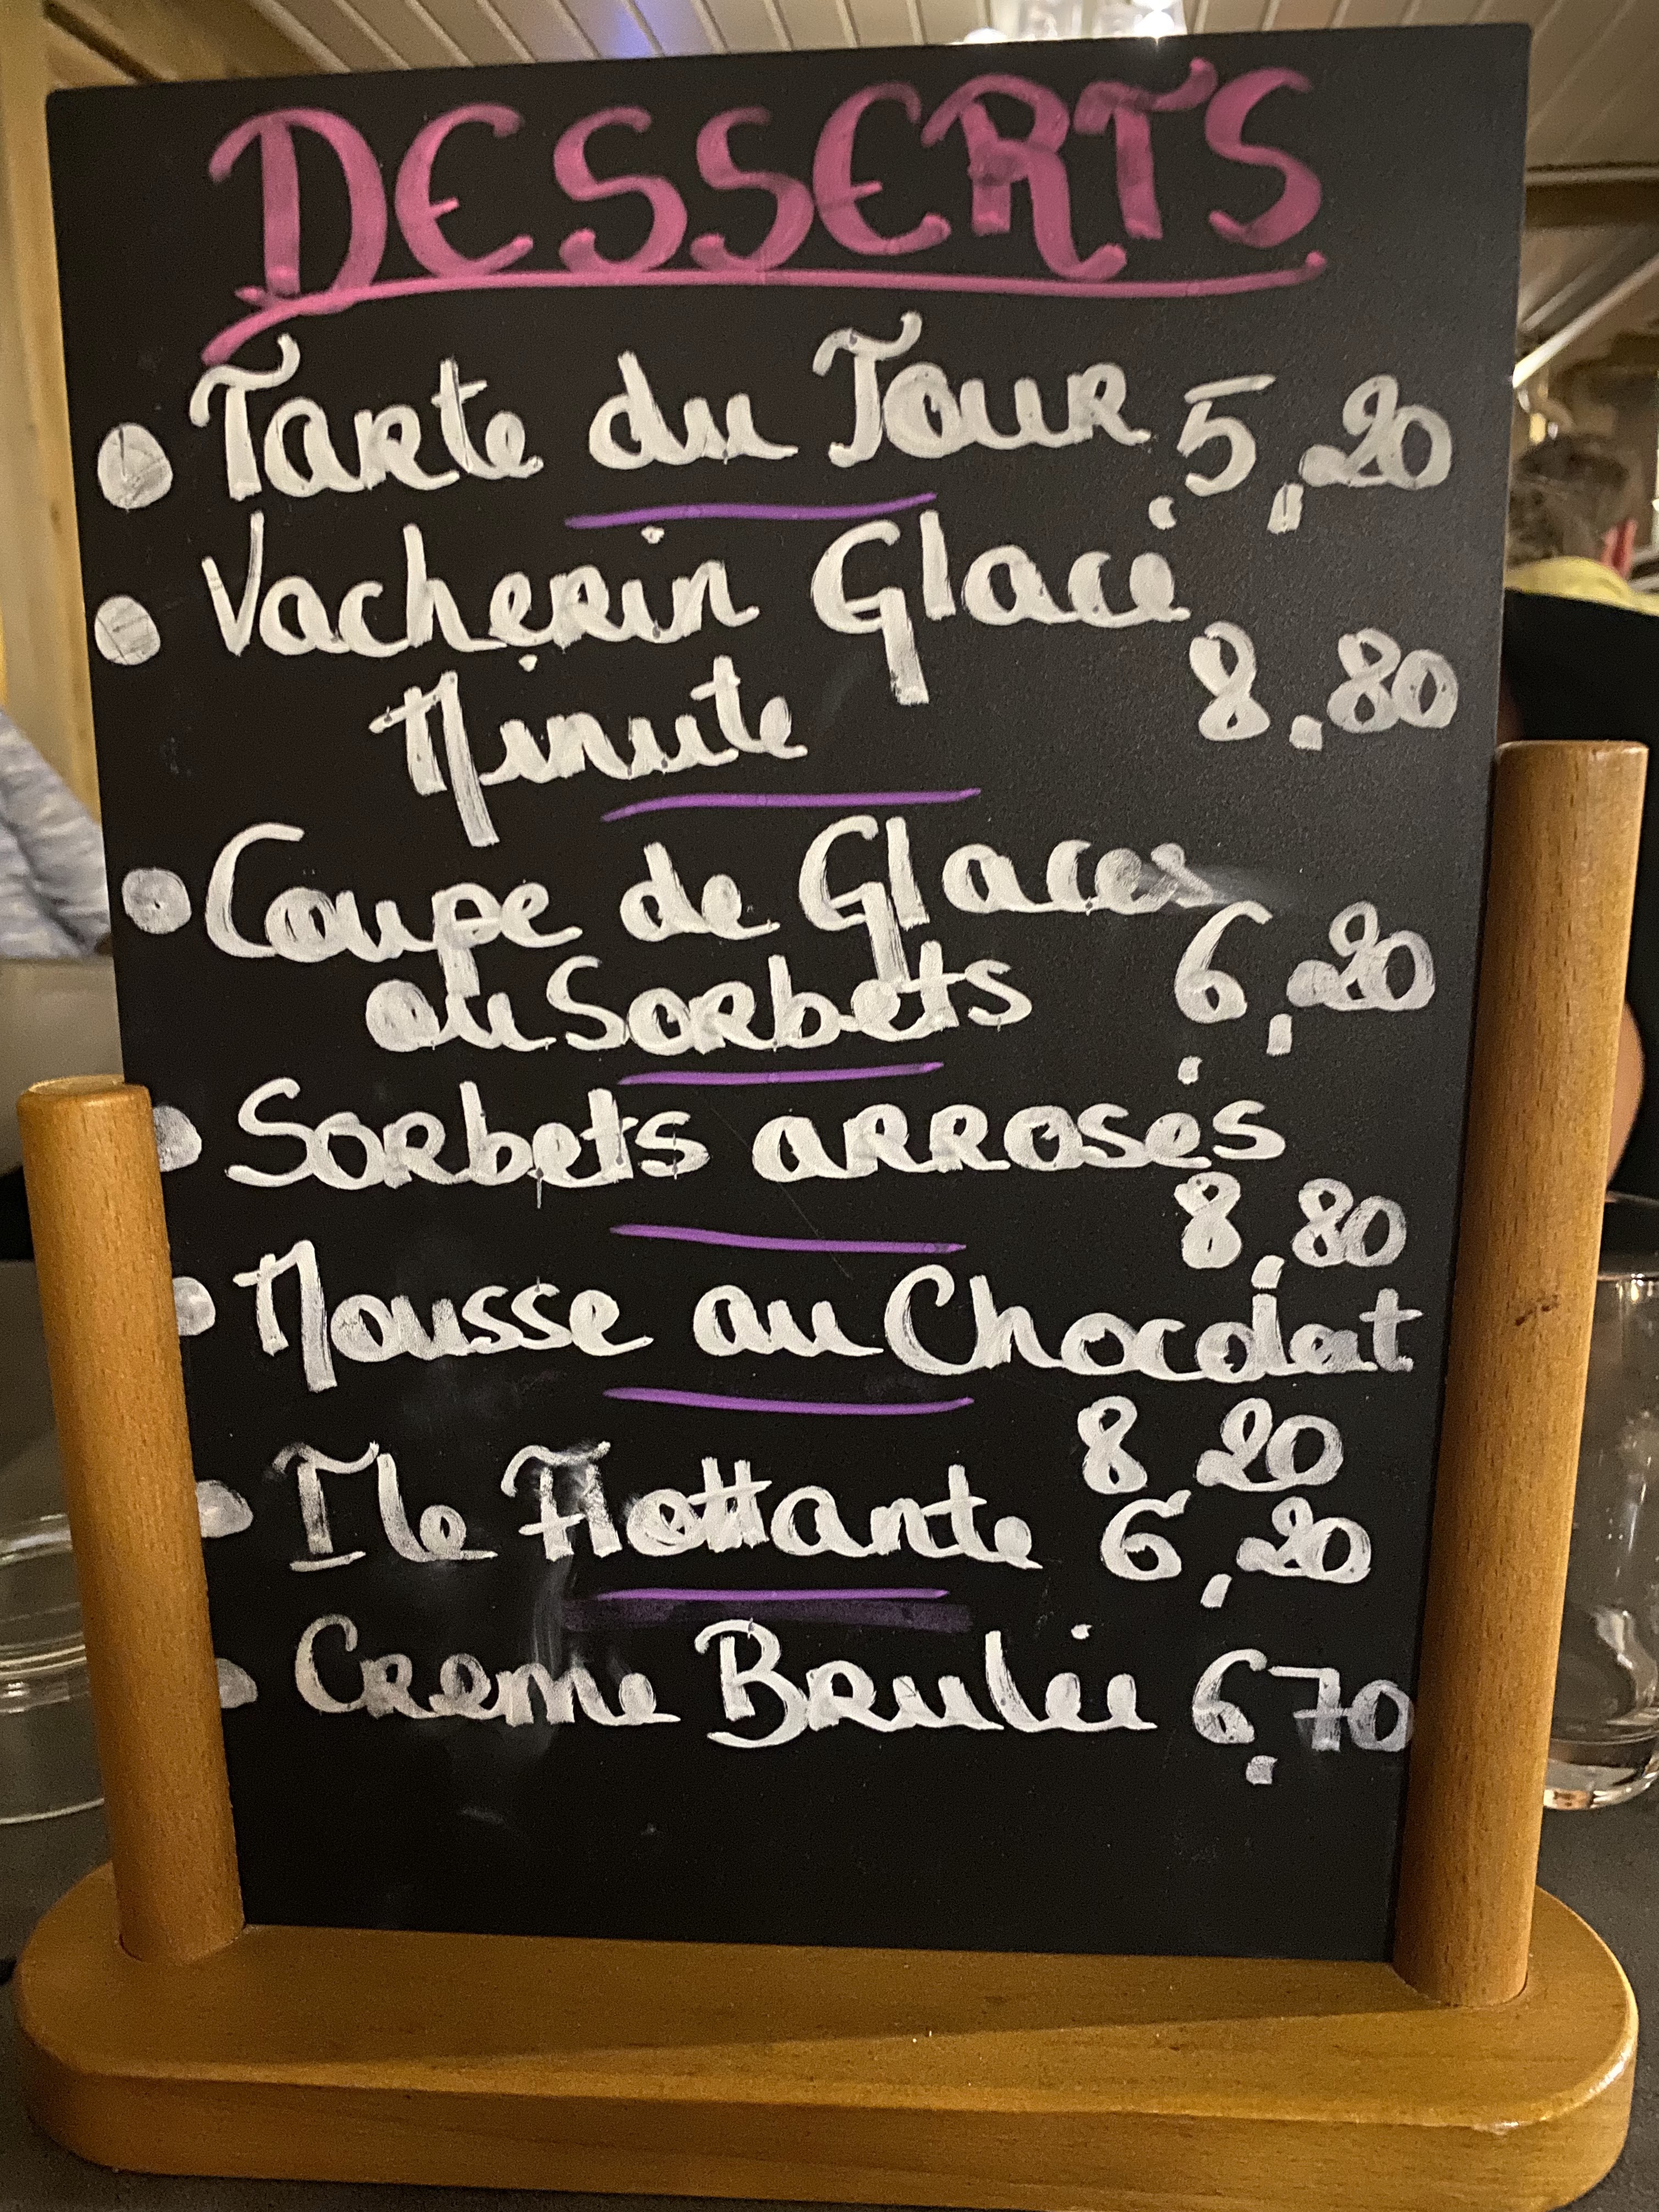 DESSERTS
• Tarte du Jour 5,20
• Vacherin Glacé
Minute 8,80
• Coupe de Glaces
ou Sorbets 6,20
• Sorbets arrosés
8,80
• Mousse au Chocolat
8 20
• Ile Flottante 6,20
• Creme Brulée 6,70